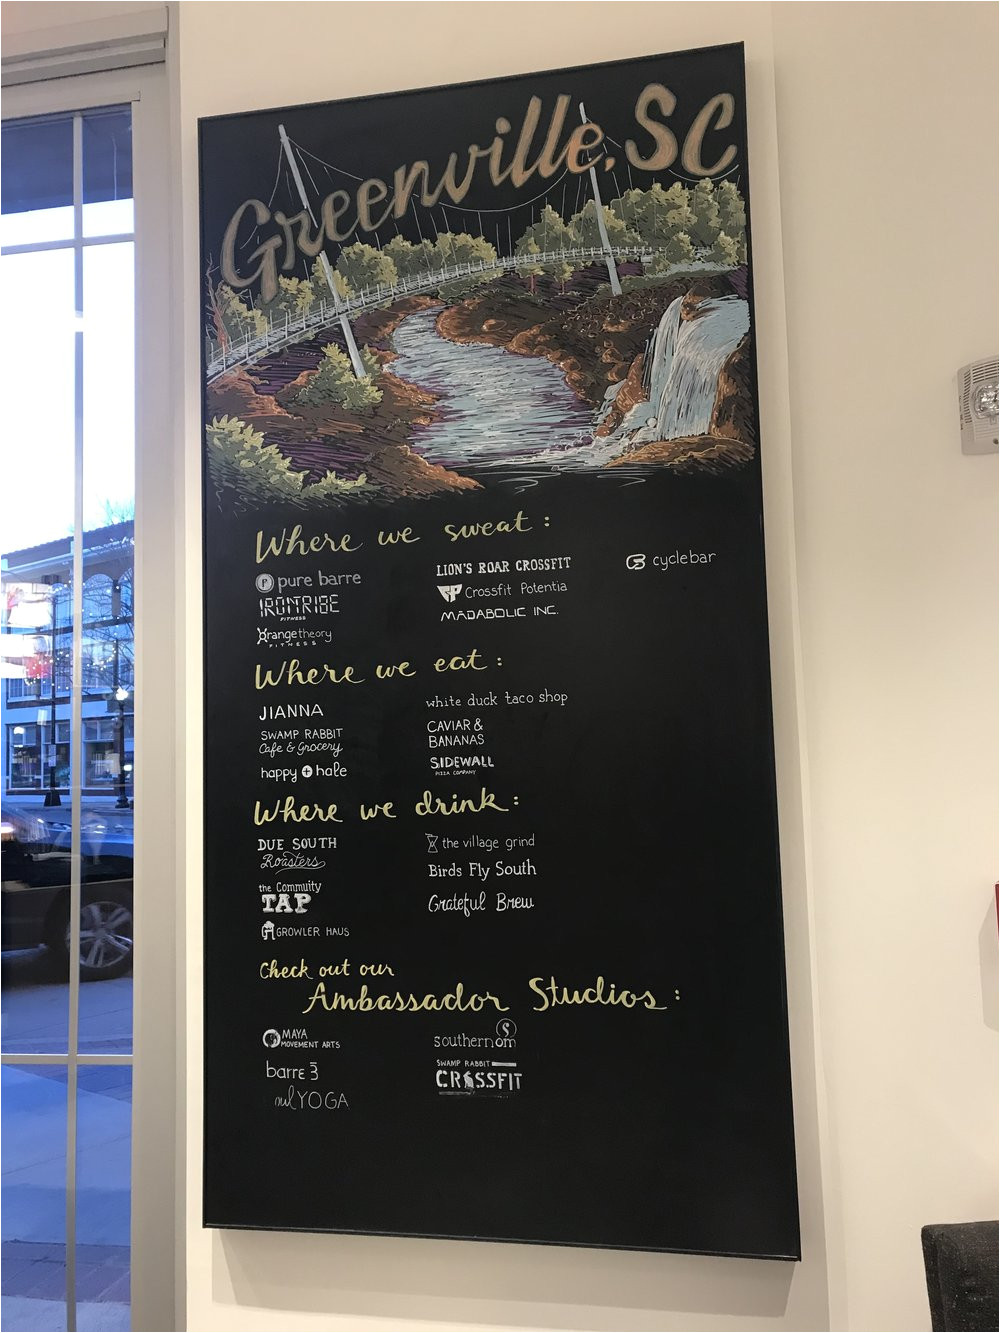 Greenville, SC
Where we sweat:
pure barre
IRONTRIBE
FITNESS
Orangetheory
FITNESS
LION'S ROAR CROSSFIT
Crossfit Potentia
MADABOLIC INC.
cyclebar
Where we eat:
JIANNA
SWAMP RABBIT
Cafe & Grocery
happy + hale
white duck taco shop
CAVIAR &
BANANAS
SIDEWALL
PIZZA COMPANY
Where we drink:
DUE SOUTH
Roasters
the Commuity
TAP
GROWLER HAUS
the village grind
Birds Fly South
Grateful Brew
Check out our
Ambassador Studios:
MAYA
MOVEMENT ARTS
barre 3
YOGA
southern om
SWAMP RABBIT
CROSSFIT